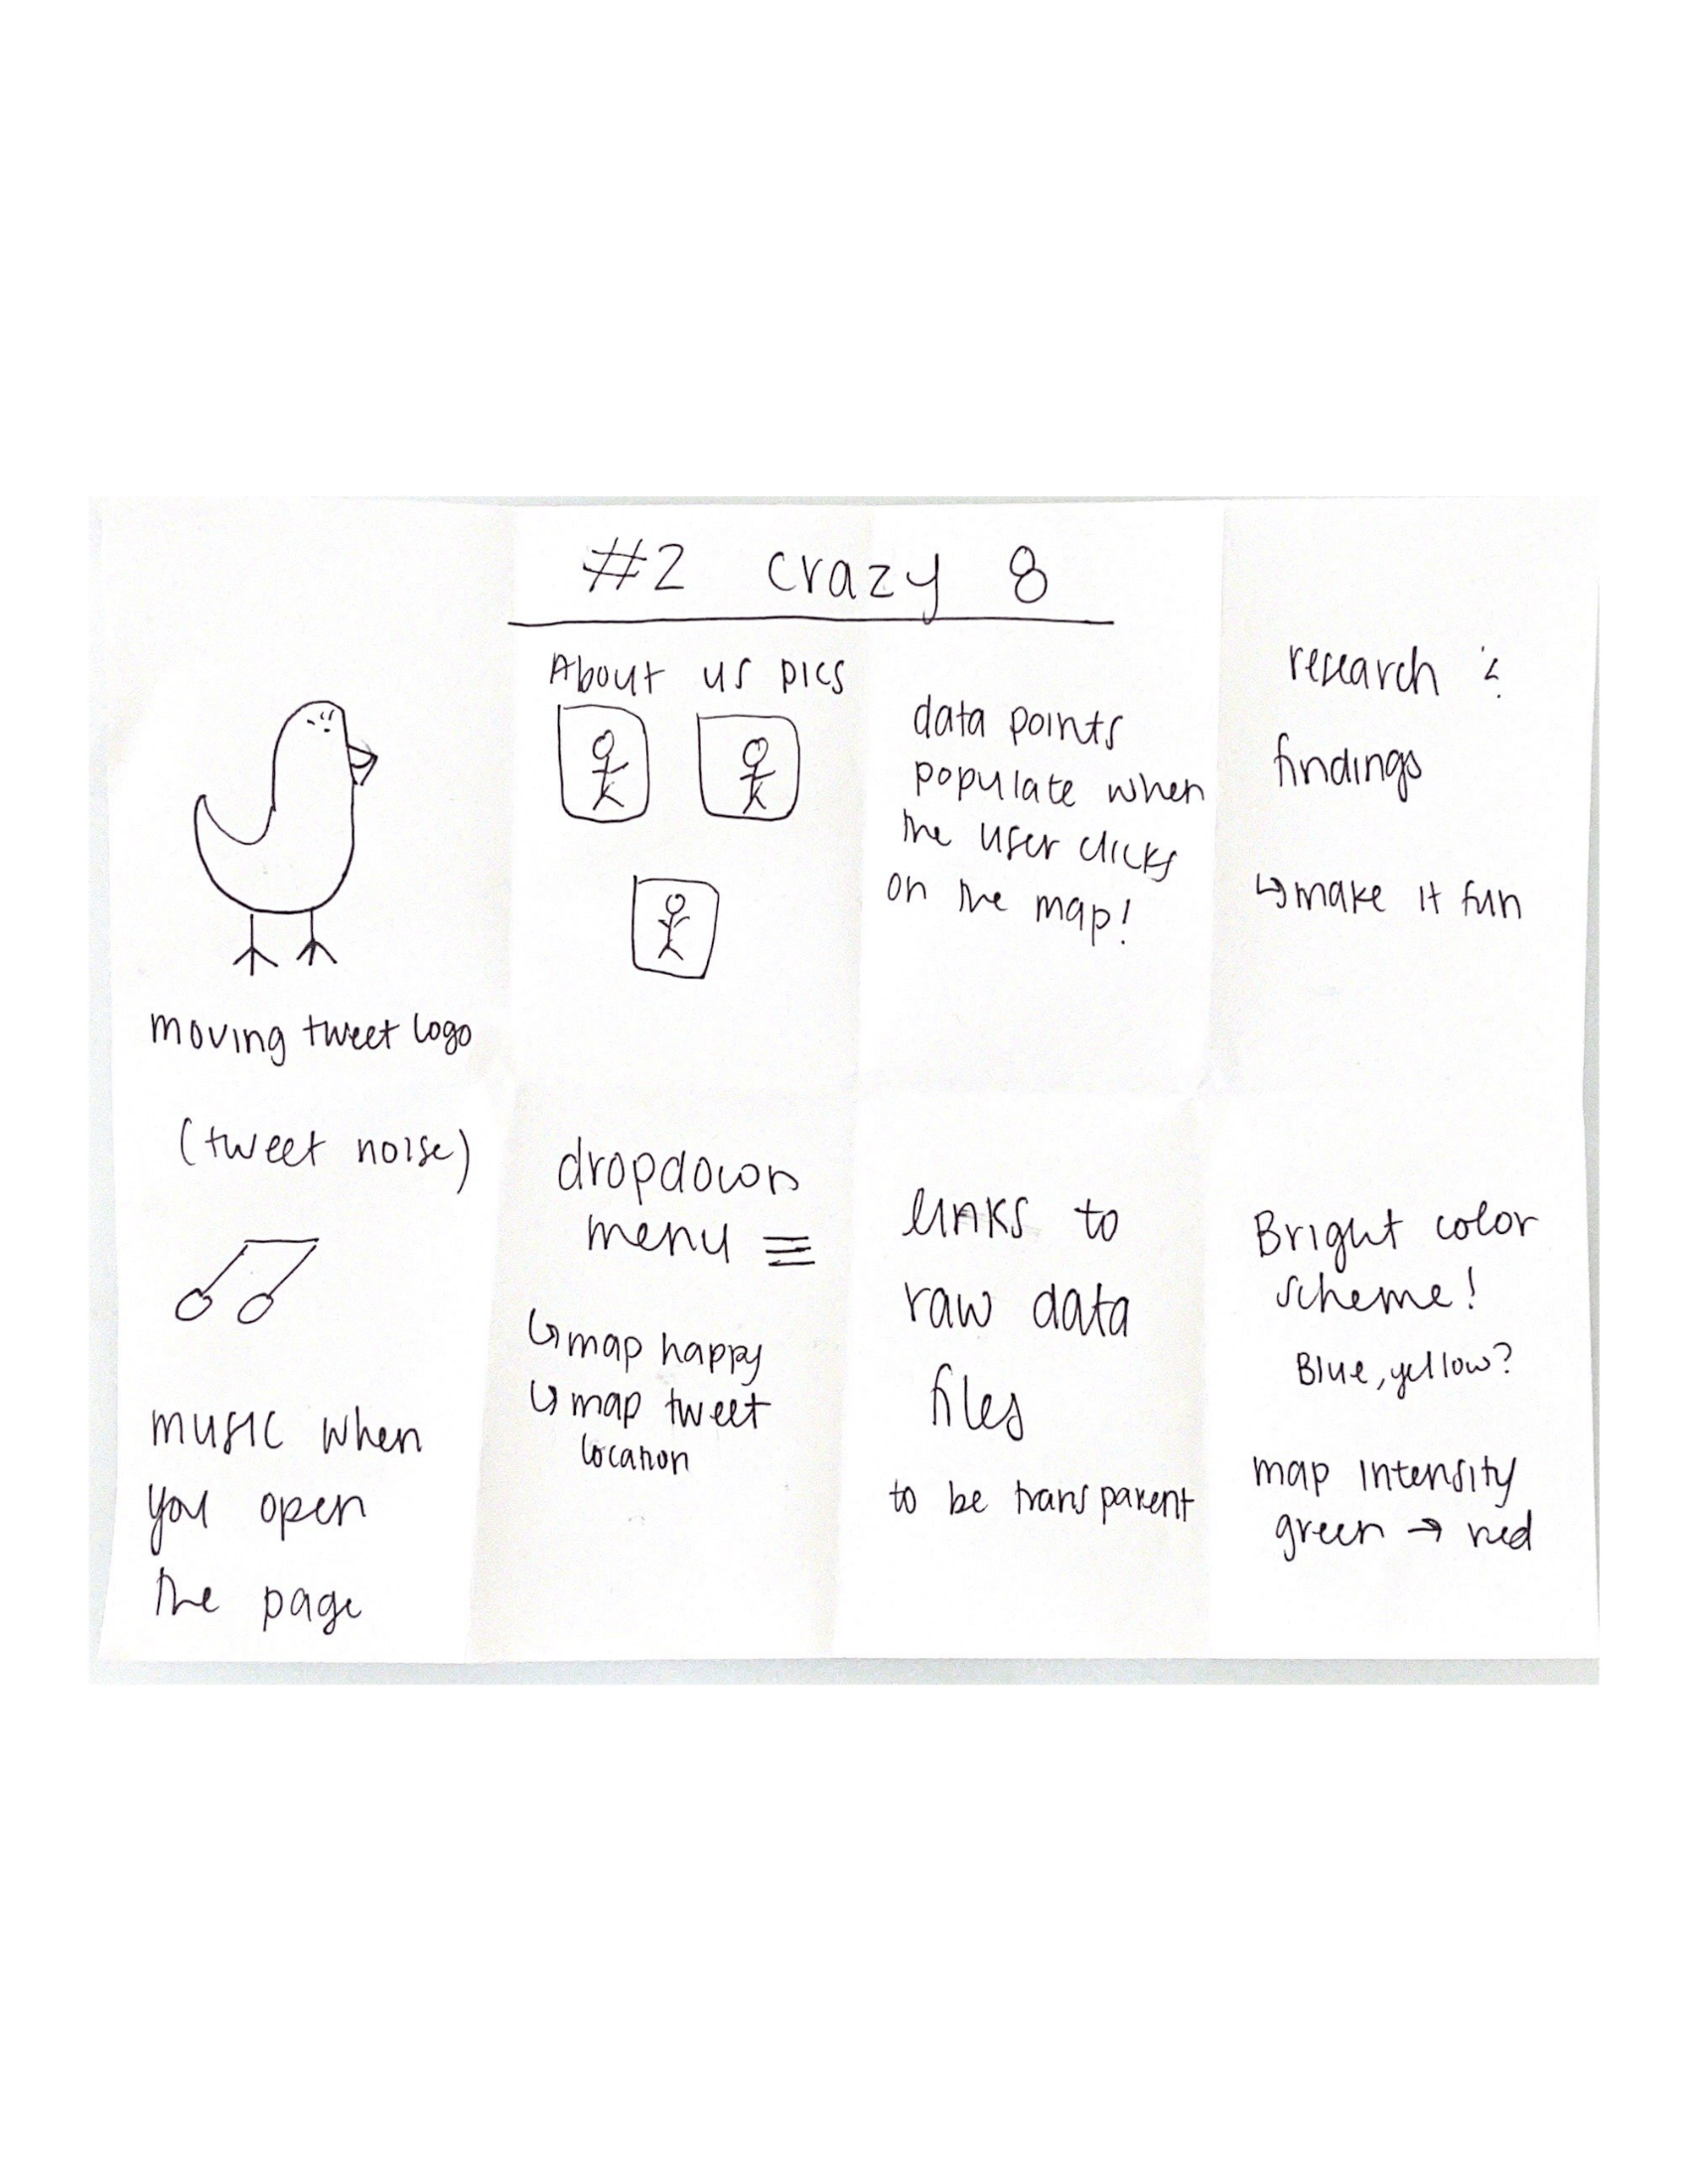 #2 crazy 8
moving tweet logo
About us pics
data points
populate when
the user clicks
on the map!
research &
findings
↳ make it fun
(tweet noise)
music when
you open
the page
dropdown
menu
↳ map happy
↳ map tweet
location
links to
raw data
files
to be transparent
Bright color
scheme!
Blue, yellow?
map intensity
green → red